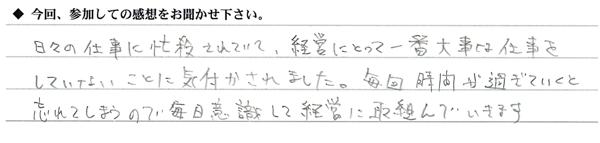 ◆ 今回、参加しての感想をお聞かせ下さい。
日々の仕事に忙殺されていて、経営にとって一番大事な仕事を
していないことに気付かされました。毎回 時間が過ぎていくと
忘れてしまうので毎日意識して経営に取組んでいきます